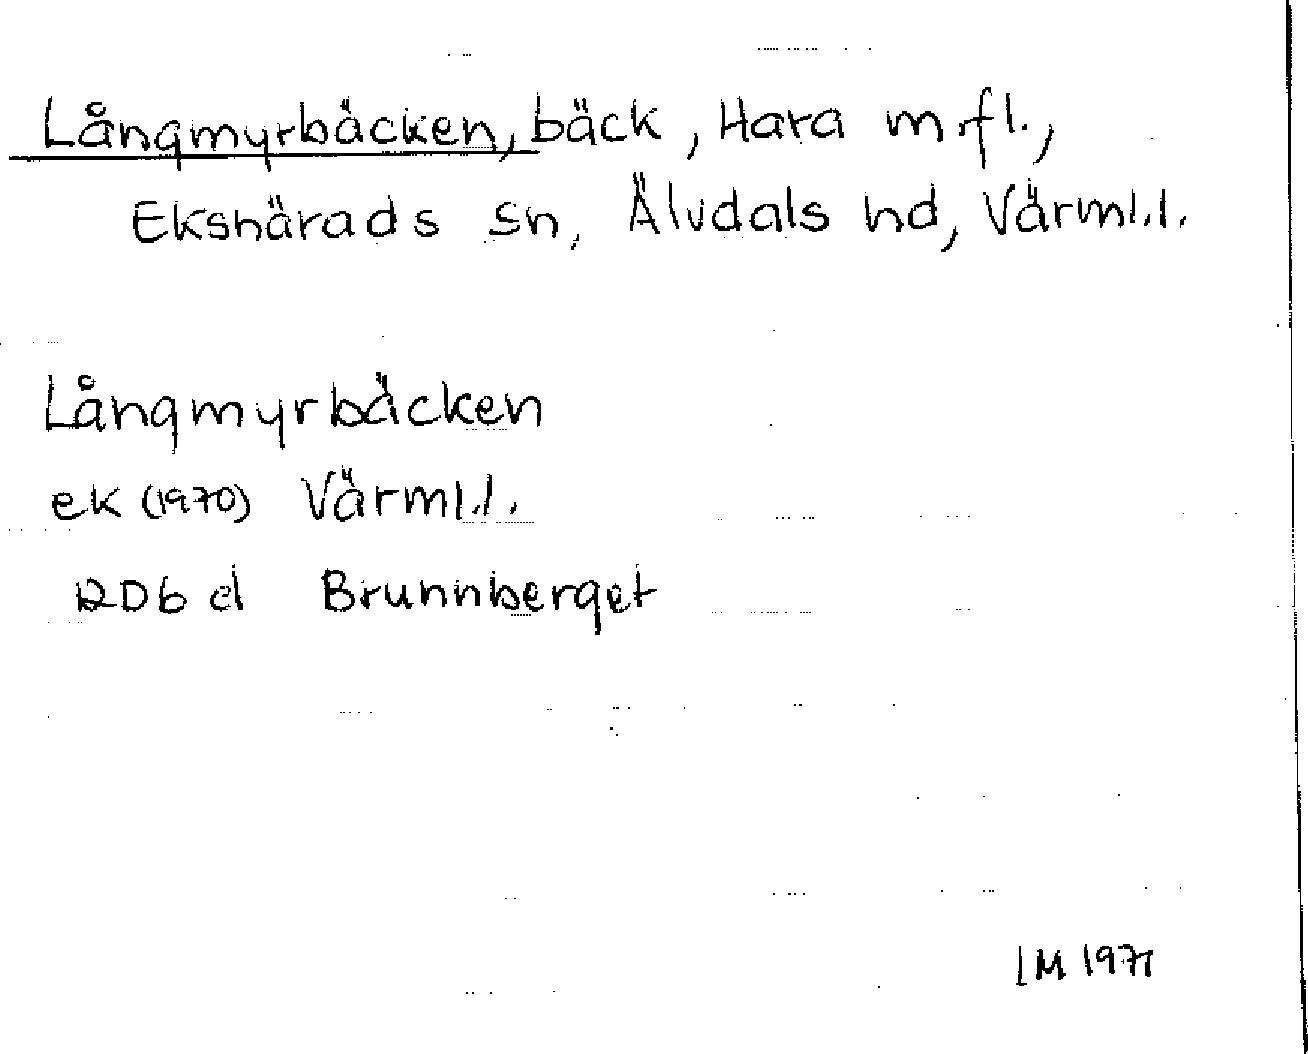 Långmyrbäcken, bäck, Hara m.fl.,
Ekshärads sn, Älvdals hd, Värml.l.
Långmyrbäcken
ek (1970) Värml.l.
12D6d Brunnberget
LM 1971